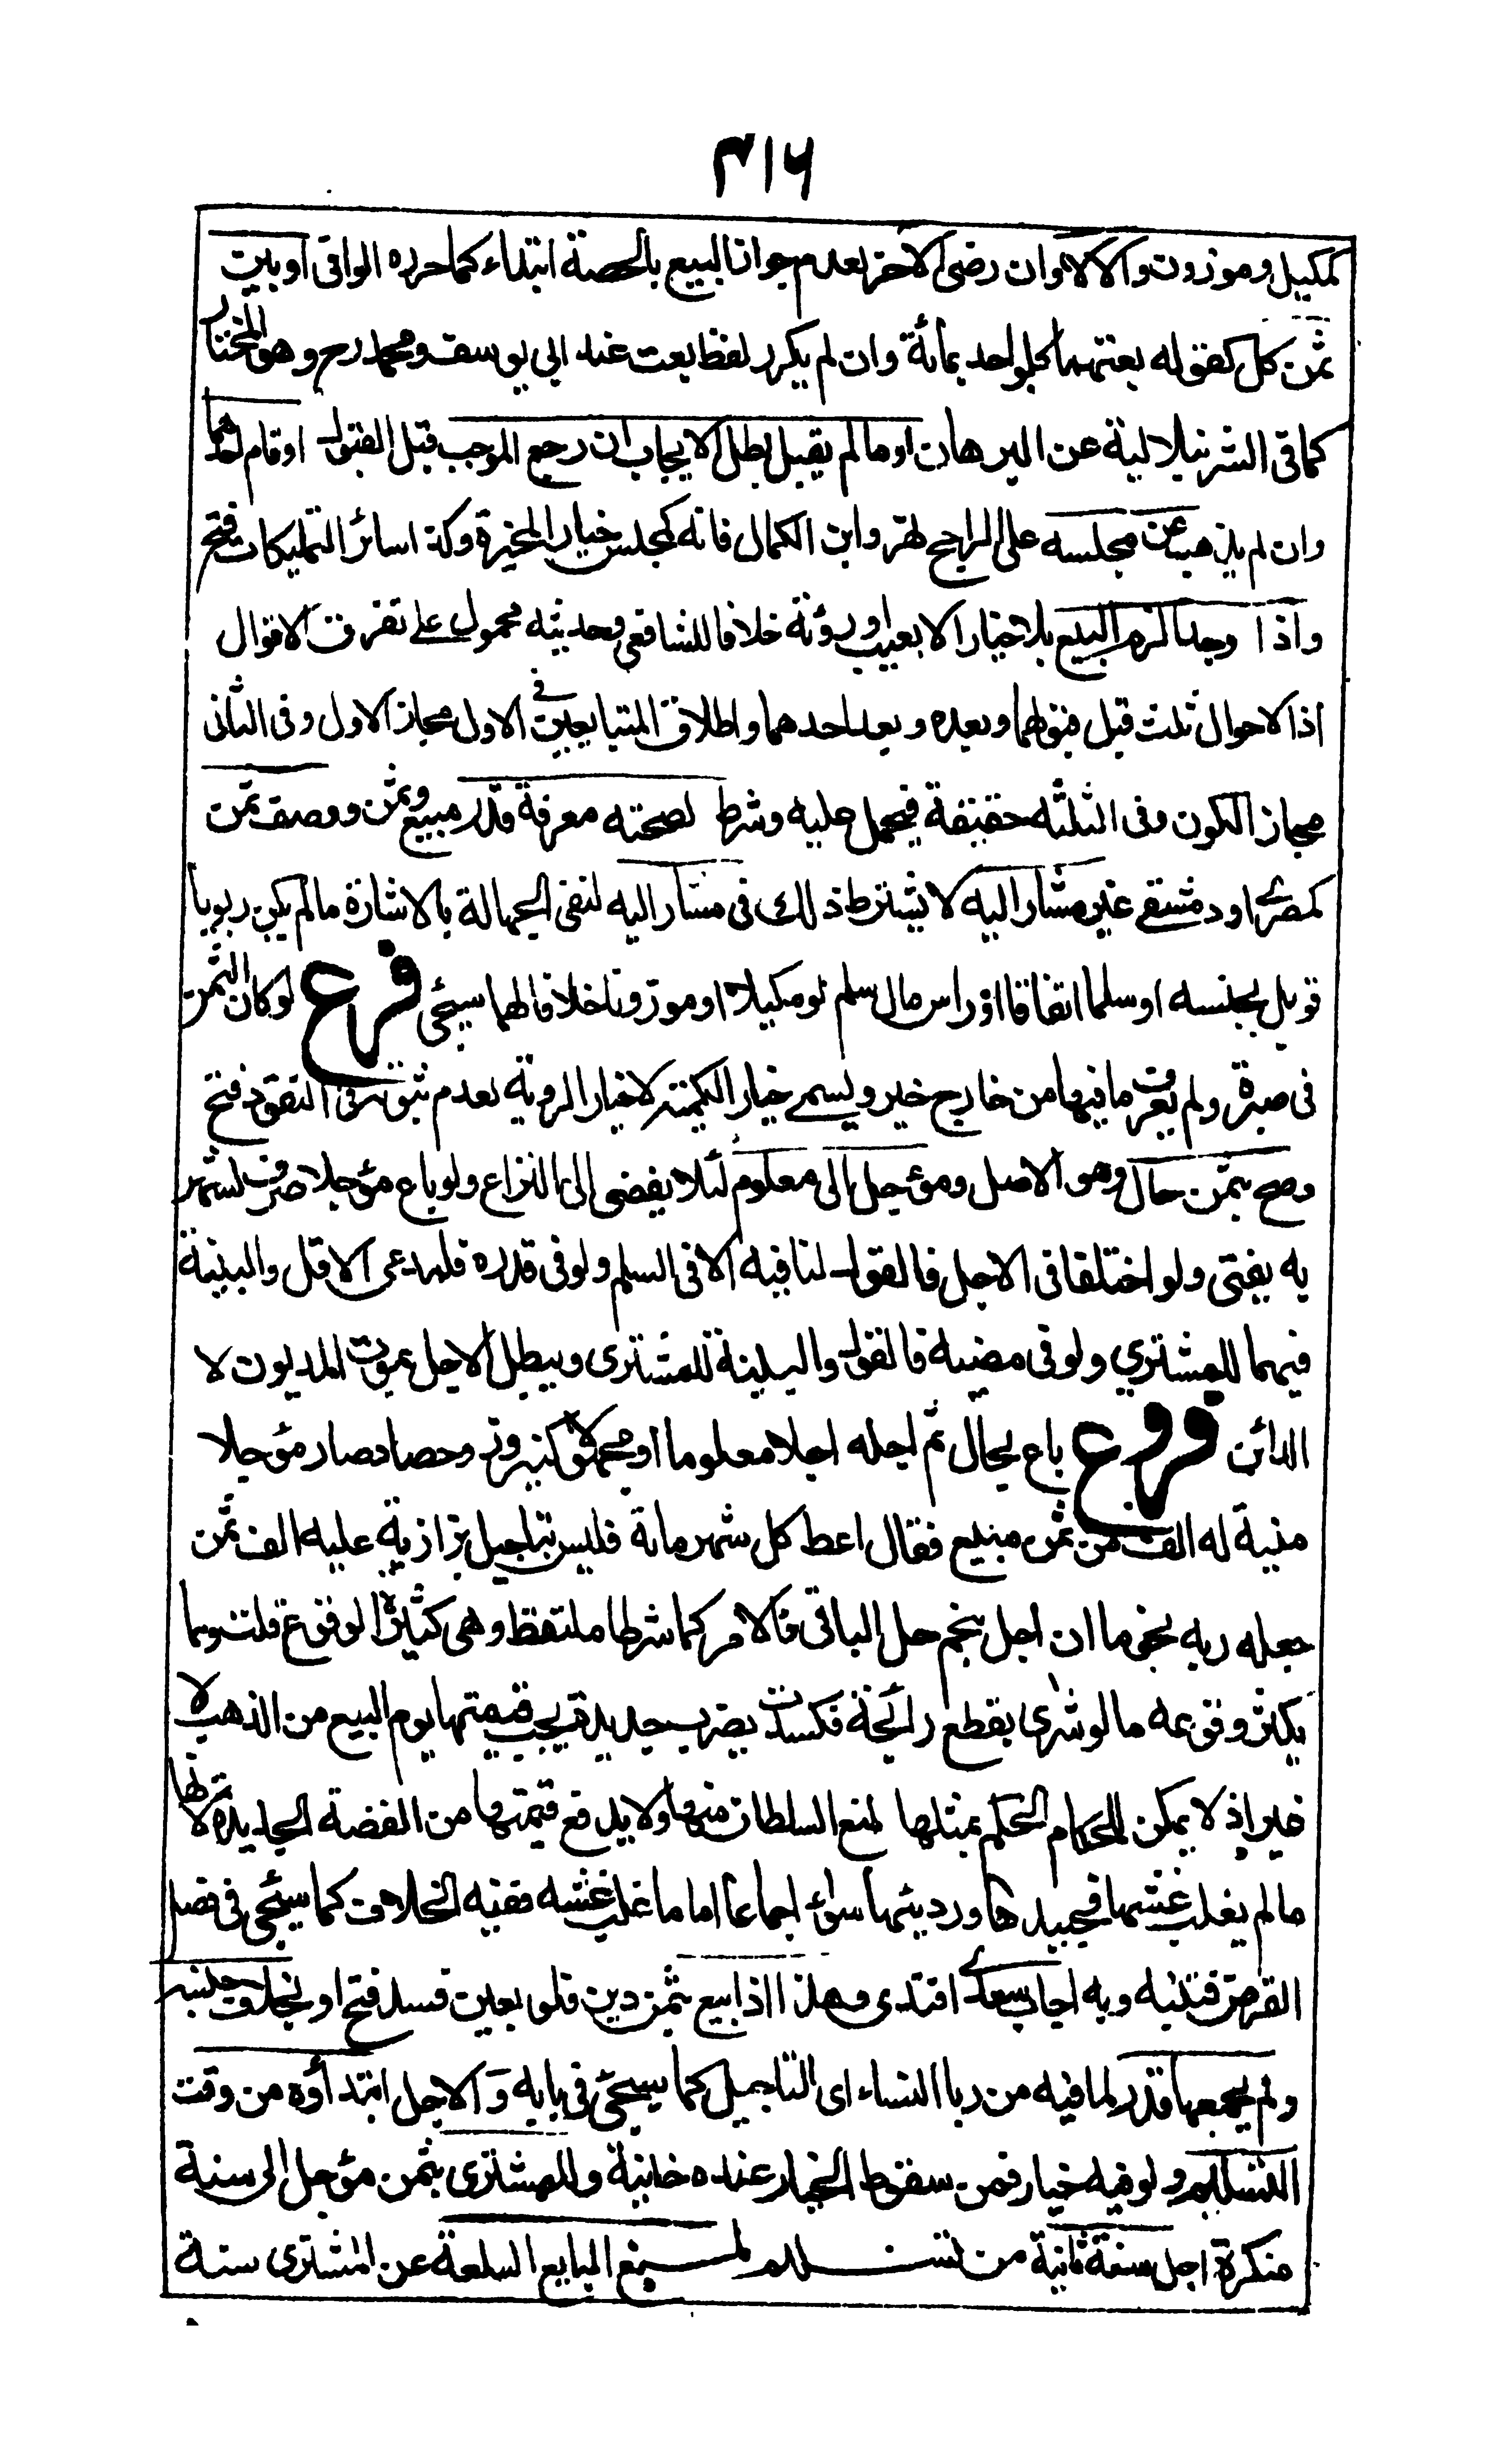 ٣١٦
كمكيل وموزون والا لا وان رضى الاخر لعدم جواز البيع بالحصة ابتداء كما حرره الوانى او بين
ثمن كل كقوله بعتهما كل واحد بمائة وان لم يكرر لفظ بعت عند ابي يوسف ومحمد رح وهو المختار
كما فى الشرنبلالية عن البرهان او ما لم يقبل بطل الايجاب ان رجع الموجب قبل القبول او قام احدهما
وان لم يذهب عن مجلسه على الراجح نهر وابن الكمال فانه كمجلس خيار المخيرة وكذا سائر التمليكات فتح
واذا وجدا لزم البيع بلا خيار الا بعيب او رؤية خلافا للشافعى وحديثه محمول على تفرق الاقوال
اذا الاحوال ثلث قبل قبولهما وبعده وبعد احدهما واطلاق المتبايعين فى الاول مجاز الاول وفى الثانى
مجاز الكون وفى الثلثه حقيقة فيحمل عليه وشرط لصحته معرفة قدر مبيع وثمن ووصف ثمن
كمصرى او دمشقى غير مشار اليه لا يشترط ذلك فى مشار اليه لنفى الجهالة بالاشارة ما لم يكن ربويا
قوبل بجنسه او سلما اتفاقا او راس مال سلم لو مكيلا او موزونا خلافا لهما سيجئ فرع لو كان الثمن
فى صبرة ولم يعرف ما فيها من خارج خير ويسمى خيار الكمية لا خيار الروية لعدم ثبوته فى النقود فتح
وصح بثمن حال وهو الاصل ومؤجل الى معلوم لئلا يفضى الى النزاع ولو باع مؤجلا صرف لشهر
به يفتى ولو اختلفا فى الاجل فالقول لنافيه الا فى السلم ولو فى قدره فلمدعى الاقل والبينة
فيهما للمشترى ولو فى مضيه فالقول والبينة للمشترى ويبطل الاجل بموت المديون لا
الدائن فروع باع بحال ثم اجله اجلا معلوما او مجهولا كنيروز وحصاد صار مؤجلا
منية له الف من ثمن مبيع فقال اعط كل شهر مائة فليس بتاجيل بزازية عليه الف ثمن
جعله ربه نجوما ان اخل بنجم حل الباقى فالامر كما شرطا ملتقط وهى كثيرة الوقوع قلت ومما
يكثر وقوعه ما لو شرى بقطع رائجة فكسدت بضرب جديدة يجب قيمتها يوم البيع من الذهب لا
غير اذ لا يمكن للحكام الحكم بمثلها لمنع السلطان منها ولا يدفع قيمتها من الفضة الجديدة لانها
ما لم يغلب غشها فجيدها ورديئها سواء اجماعا اما ما غلب غشه ففيه الخلاف كما سيجئ فى فصل
القرض فتنبه وبه اجاب سعدى افندى وهذا اذا بيع بثمن دين فلو بعين فسد فتح او بخلاف جنسه
ولم يجمعهما قدر لما فيه من ربا النساء اى التاجيل كما سيجئ فى بابه و الاجل ابتداؤه من وقت
التسليم ولو فيه خيار فمن سقوط الخيار عنده خانية وللمشترى بثمن مؤجل الى سنة
منكرة اجل سنة ثانية من تسلم لمنع البايع السلعة عن المشترى سنة